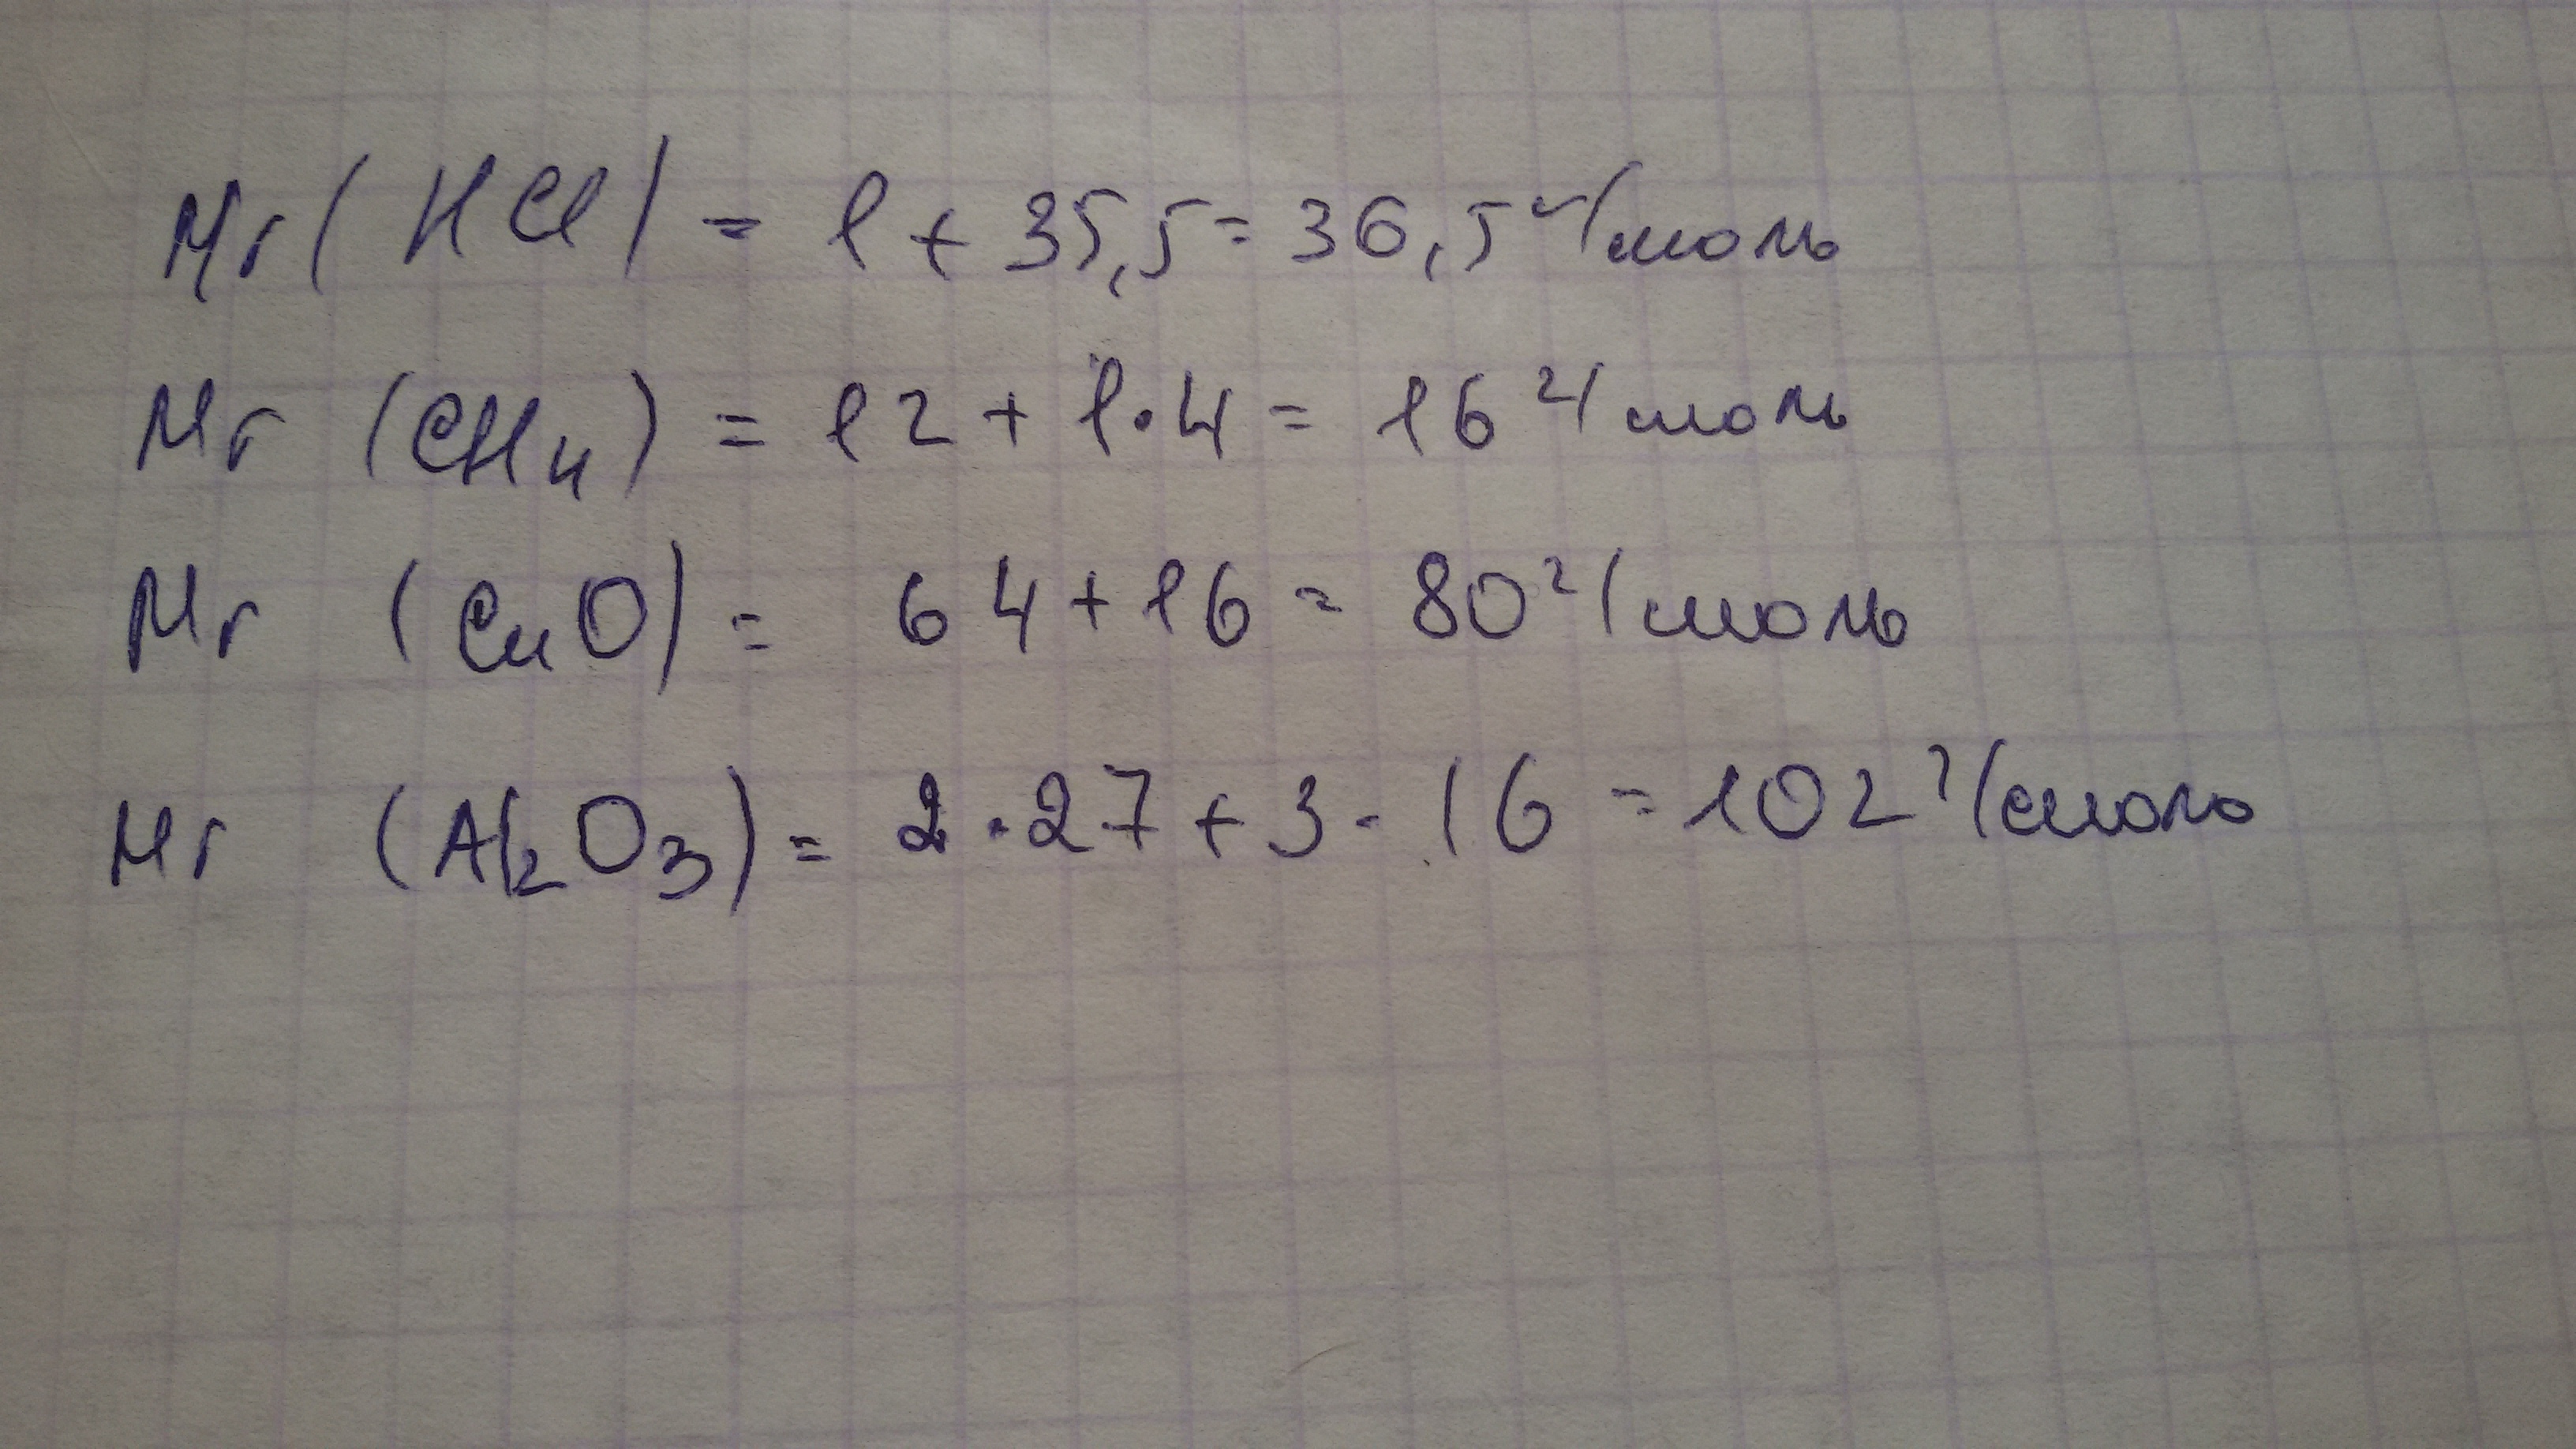 Mr (HCl) = 1 + 35,5 = 36,5 г/моль
Mr (CH₄) = 12 + 1·4 = 16 г/моль
Mr (CuO) = 64 + 16 = 80 г/моль
Mr (Al₂O₃) = 2·27 + 3·16 = 102 г/моль